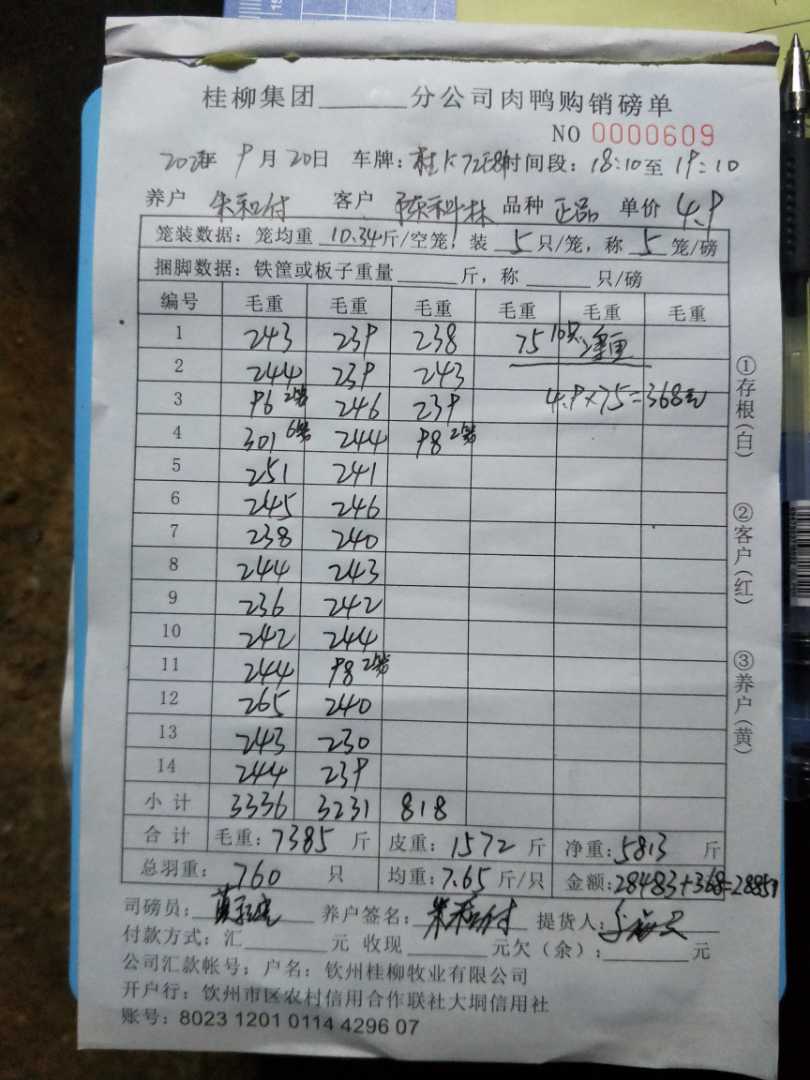 桂柳集团______分公司肉鸭购销磅单
NO 0000609
年 9月20日 车牌: 桂K 时间段: 18:10至19:10
养户 朱和付 客户 陈科林 品种 正品 单价 4.9
笼装数据: 笼均重 10.34斤/空笼, 装 5 只/笼, 称 5 笼/磅
捆脚数据: 铁筐或板子重量______斤, 称______只/磅
编号 毛重 毛重 毛重 毛重 毛重 毛重
1 243 239 238 75 10只 净重
2 244 239 243
3 96 2笼 246 239 4.9×75=368元
4 301 6笼 244 98 2笼
5 251 241
6 245 246
7 238 240
8 244 243
9 236 242
10 242 244
11 244 98 2笼
12 265 240
13 243 230
14 244 239
小计 3336 3231 818
合计 毛重: 7385 斤 皮重: 1572 斤 净重: 5813 斤
总羽重: 760 只 均重: 7.65 斤/只 金额: 28483+368=28851
司磅员: 养户签名: 朱和付 提货人:
付款方式: 汇______元 收现______元欠(余):______元
公司汇款帐号: 户名: 钦州桂柳牧业有限公司
开户行: 钦州市区农村信用合作联社大垌信用社
账号: 8023 1201 0114 4296 07
①存根(白)
②客户(红)
③养户(黄)